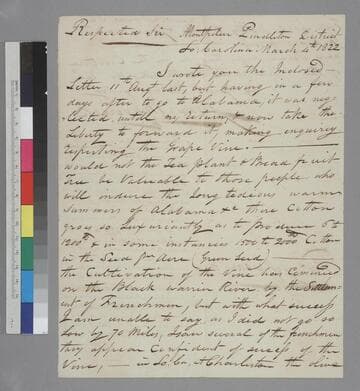 Respected Sir Montpelier Pendleton District
So. Carolina March 4th 1822
I wrote you the Inclosed
Letter 11th Augt last, but having in a few
days after to go to Alabama, it was neg-
lected, untill my return, & now take the
Liberty to forward it, making enquiry
respecting the Grape Vine.
would not the Tea plant & Bread fruit
Tree be Valuable to those people who
will endure the long tedious warm
summers of Alabama &c there Cotton
grows so Luxuriently as to produce 8 to
1200 lb & in some instances 1500 to 2000 lb Cotton
in the Seed per Acre (Green Seed)
the Cultivation of the Vine has Commenced
on the Black Warrior River by the Settlem-
ent of Frenchmen but with what success
I am unable to say as I did not go so
low by 70 Miles, I saw several of the frenchmen
they appear Confident of success of the
Vine, — in So. Ca. at Charleston the olive